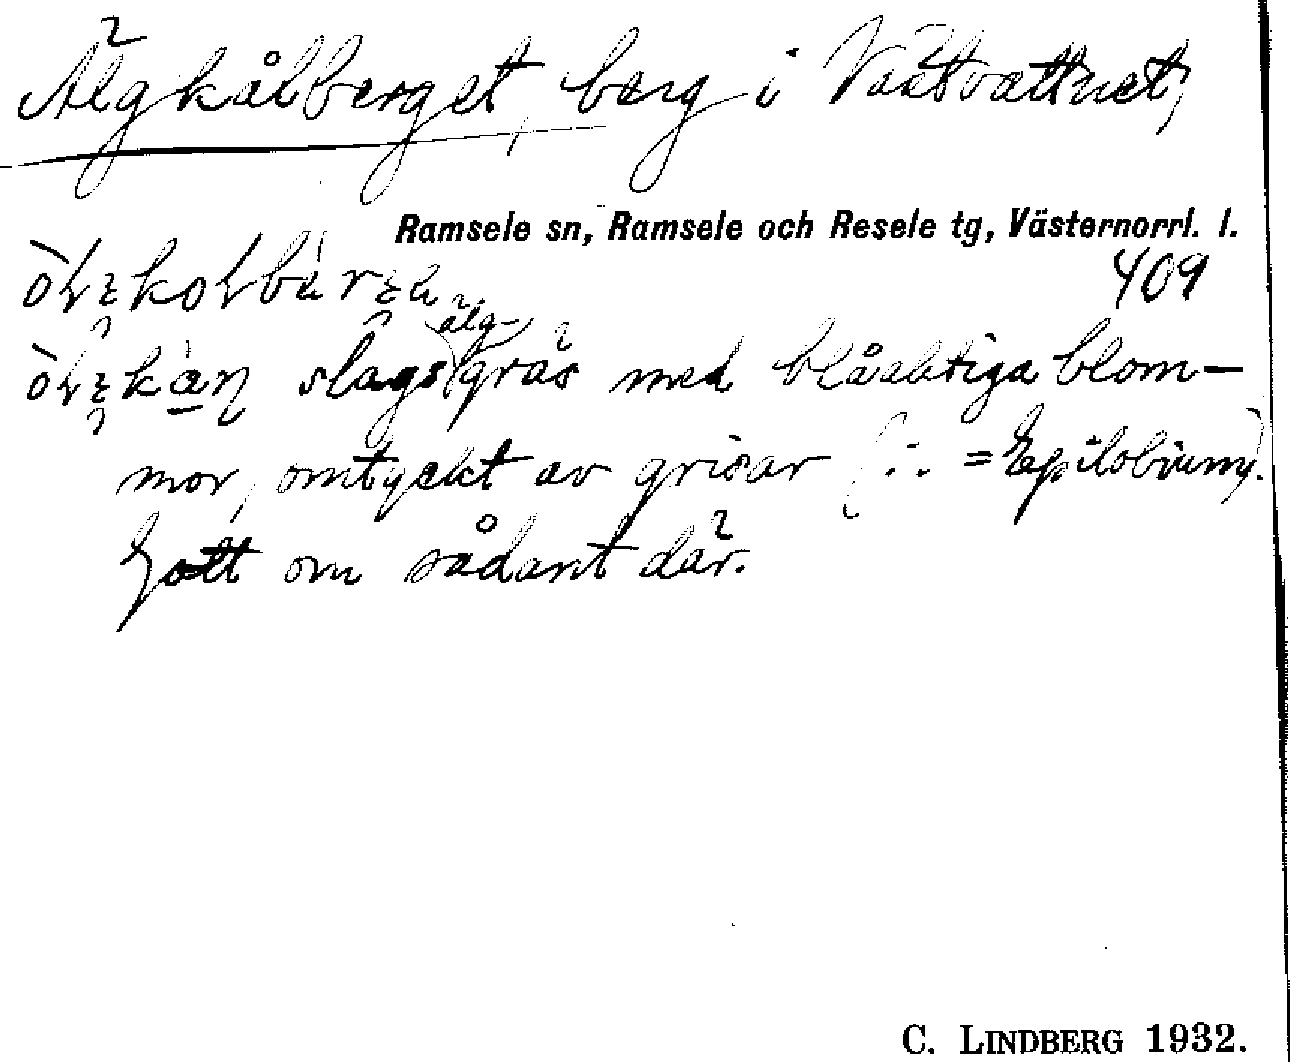 Älgkålberget, berg i Västvattnet,
Ramsele sn, Ramsele och Resele tg, Västernorrl. l.
409
slags älg-gräs med blåaktiga blom-
mor, omtyckt av grisar (:. = Epilobium).
Gott om sådant där.
C. LINDBERG 1932.